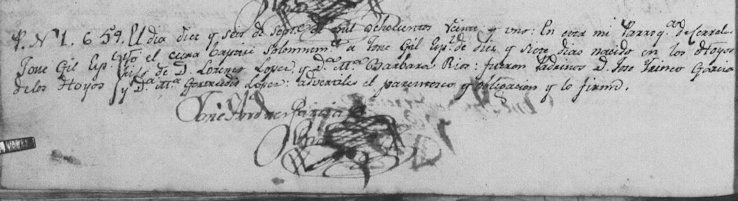 P. Nº 1. 659. El dia dies y seis de Septe de mil ochocientos veinte y uno: En esta mi Parroqal de Cerral
Jose Gil Espl yo el cura bautisè Solemnemte a Jose Gil Espl de dies y siete dias nacido en los Hoyos
de los Hoyos hijo de D. Lorenzo Lopez, y Da Ma Barbara Rios: fueron Padrinos D. Jose Garcia
y Da Ma Lopez: advertiles el parentesco y obligacion y lo firmè.
Garcia